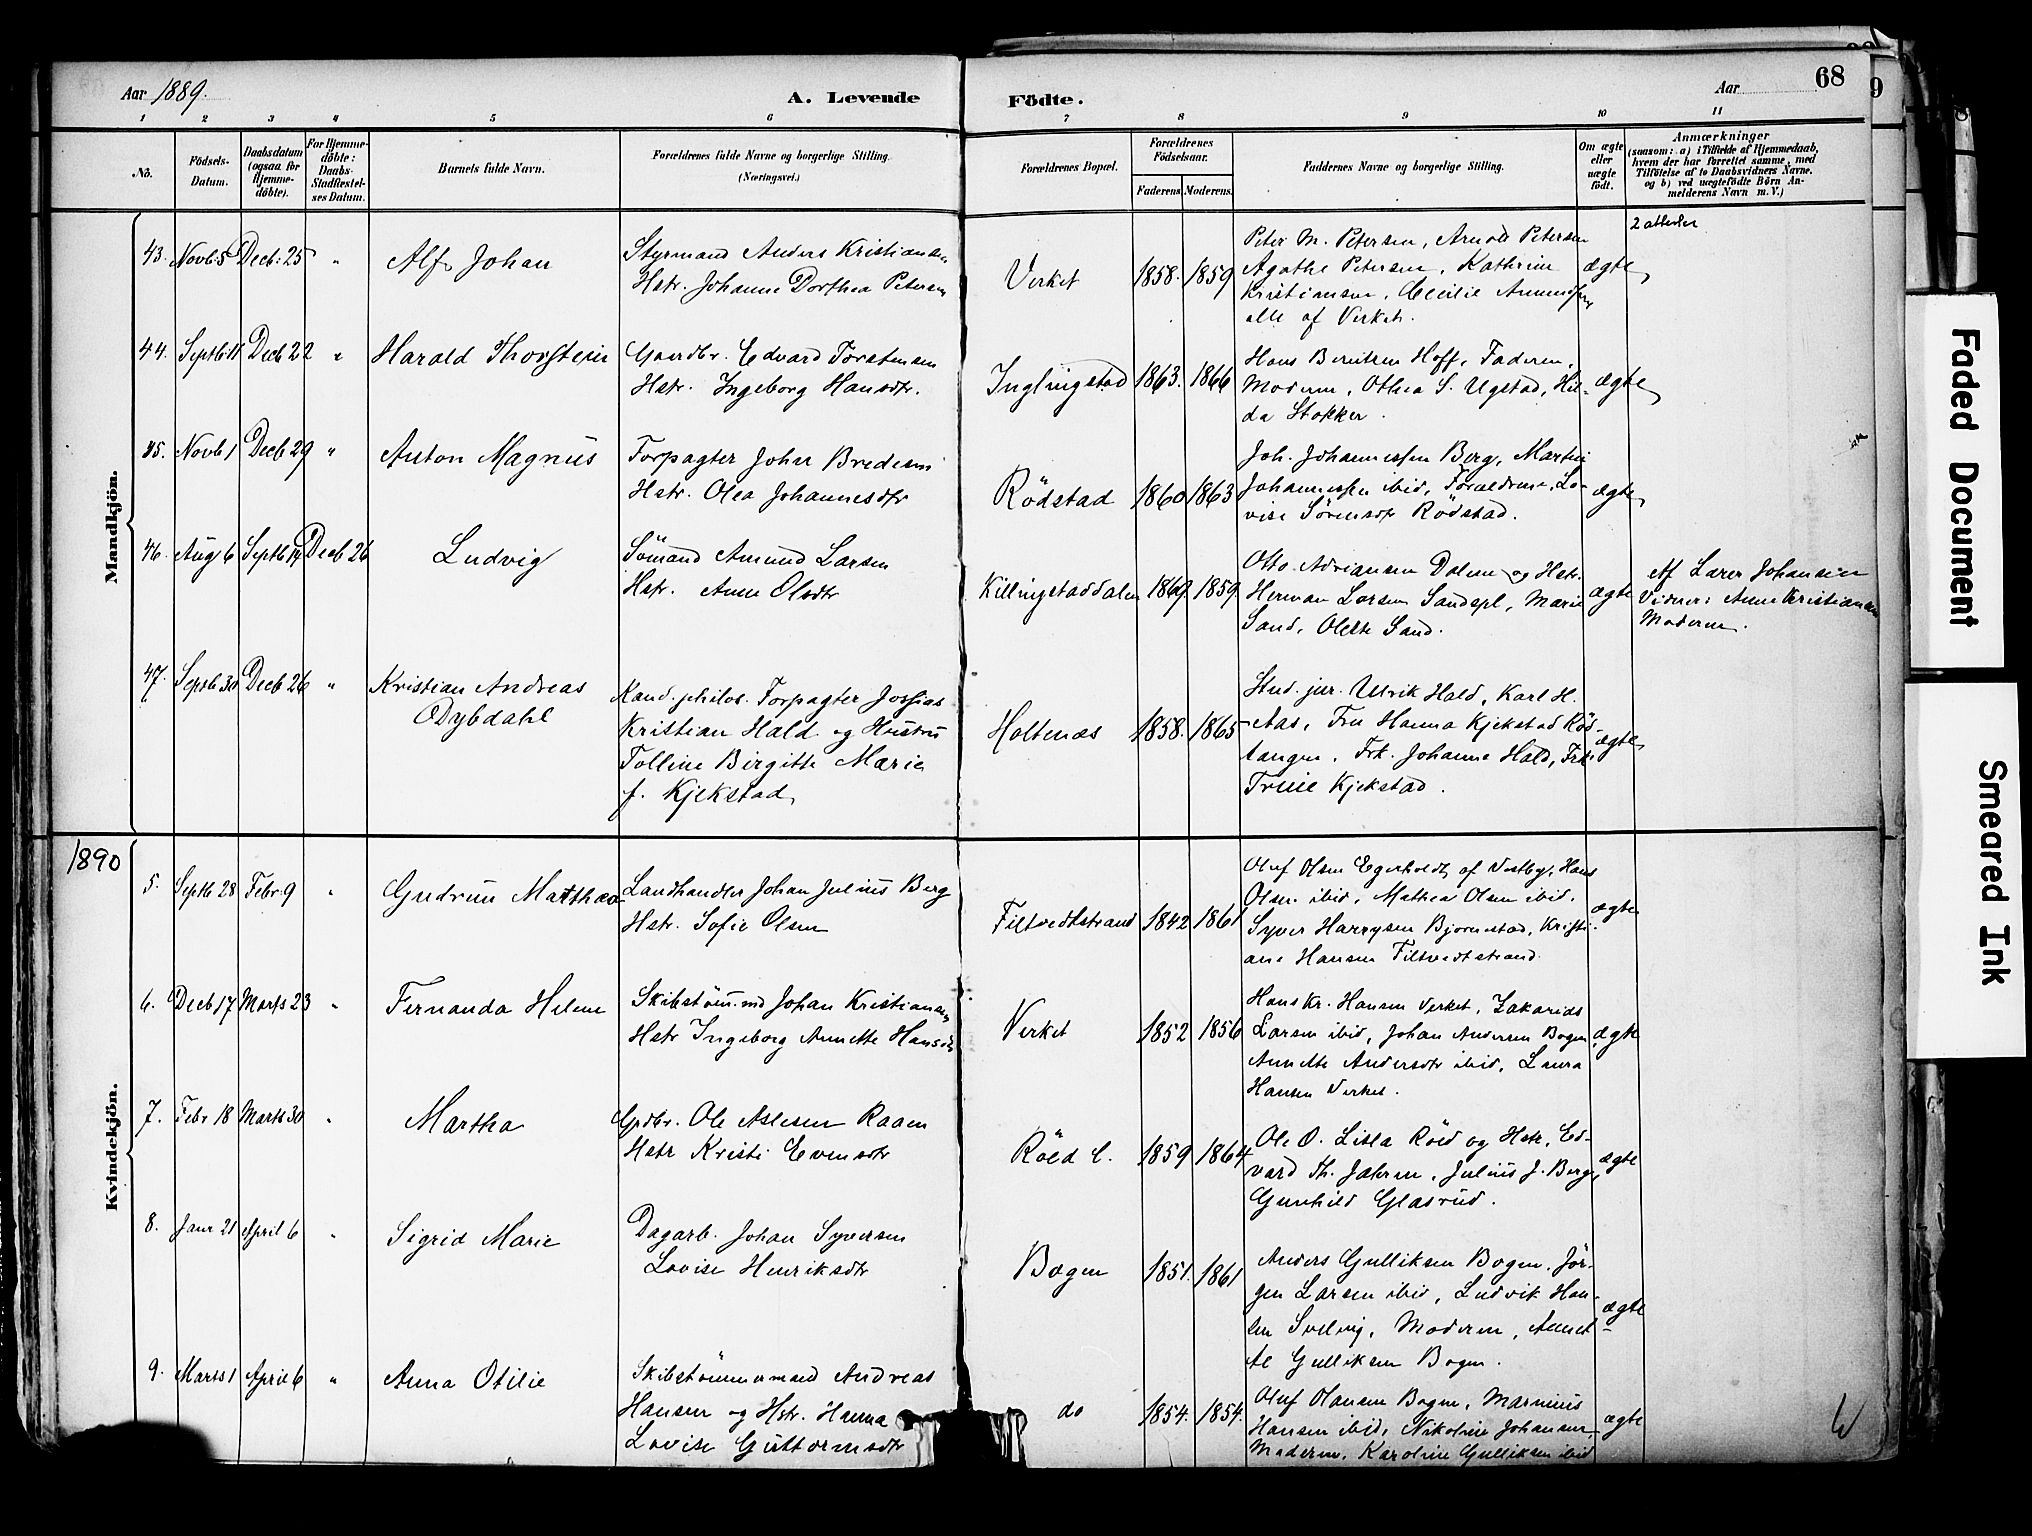 Aar 1889.
A. Levende
Födte.
Aar
68
9
1 2 3 4 5 6 7 8 9 10 11
No.
Födsels-
Datum.
Daabsdatum
(ogsaa for
Hjemme-
döbte).
For Hjemme-
döbte:
Daabs-
Stadfæstel-
ses Datum.
Barnets fulde Navn.
Forældrenes fulde Navne og borgerlige Stilling.
(Næringsvei.)
Forældrenes Bopæl.
Forældrenes
Födselsaar.
Faderens. Moderens.
Faddernes Navne og borgerlig Stilling.
Om ægte
eller
uægte
født.
Anmærkninger
(saasom: a) i Tilfælde af Hjemmedaab,
hvem der har forrettet samme, med
Tilföielse af to Daabsvidners Navne,
og b) ved uægtefödte Börn An-
melderens Navn m. V.)
Mandkjön.
43. Novb: 5 Decb: 25 " Alf Johan
Styrmand Anders Kristiansen
Hstr. Johanne Dorthea Petersen
Verket 1858. 1859
Peter M. Petersen, Arnold Petersen
Agathe Petersen, Kathrine
Kristiansen, Cecilie Amundsen
alle af Verket.
ægte
2 attester
44. Septb 18 Decb 22 " Harald Thorstein
Gaardbr. Edvard Torstensen
Hstr. Ingeborg Hansdtr.
Inglingstad 1863. 1866
Hans Berntsen Hoff, Faderen,
Moderen, Othea S. Ugstad, Hil-
da Stokker.
ægte
45. Novb 1 Decb 29 " Anton Magnus
Forpagter Johan Bredesen
Hstr. Olea Johannesdtr
Rödstad 1860 1863
Joh. Johannessen Berg, Martin
Johannessen ibid, Forældrene, Lo-
vise Sörensdtr Rödstad.
ægte
46. Aug 6 Septb 14 Decb 26 Ludvig
Sömand Amund Larsen
Hstr. Anne Olsdtr
Killingstaddalen 1869. 1859.
Otto Adriansen Dalen og Hstr.
Herman Larsen Sandspl, Marie
Sand, Olette Sand.
ægte
Af Lærer Johansen
Vidner: Anne Kristiansen
Moderen.
47. Septb 30 Decb 26 " Kristian Andreas
Dybdahl
Kand. philos. Forpagter Jossias
Kristian Hald og Hustru
Tolline Birgitte Marie
f. Kjekstad
Holtenæs 1858. 1865
Stud. jur. Ulrik Hald, Karl H.
Aas, Fru Hanna Kjekstad Röd-
tangen, Frk. Johanne Hald, Frk.
Trine Kjekstad.
ægte
1890
Kvindekjön.
5. Septb 28 Febr. 9 " Gudrun Matthæa
Landhandler Johan Julius Berg
Hstr. Sofie Olsen
Filtvedtstrand 1842 1861
Oluf Olsen Egerholdt af Vestby, Hans
Olsen ibid, Mathea Olsen ibid.
Syver Harrysen Bjornestad, Kristi-
ane Hansen Filtvedtstrand.
ægte
6. Decb 17 Marts 23 " Fernanda Helene
Skibstömmd Johan Kristiansen
Hstr Ingeborg Annette Hansdtr
Verket 1852 1856
Hans Kr. Hansen Verket, Zakarias
Larsen ibid, Johan Andersen Bogen
Annette Andersdtr ibid, Laura
Hansen Verket.
ægte
7. Febr 18 Marts 30 " Martha
Grdbr. Ole Aslesen Raaen
Hstr Kristi Evensdtr
Röed l. 1859 1864
Ole O. Lisla Röed og Hstr, Ed-
vard Th. Jahren, Julius J. Berg,
Gunhild Glasrud.
ægte
8. Janr 21 April 6 " Sigrid Marie
Dagarb. Johan Syversen
Lovise Henriksdtr
Bogen 1851. 1861
Anders Gulliksen Bogen, Jör-
gen Larsen ibid, Ludvik Han-
sen Svelvig, Moderen, Annet-
te Gulliksen Bogen.
ægte
9. Marts 1 April 6 " Anna Otilie
Skibstömmermand Andreas
Hansen og Hstr. Hanna
Lovise Guttormsdtr
do 1854. 1854.
Oluf Hansen Bogen, Marinius
Hansen ibid, Nikoline Johansen,
Moderen, Karoline Gulliksen ibid
ægte
Faded Document
Smeared Ink